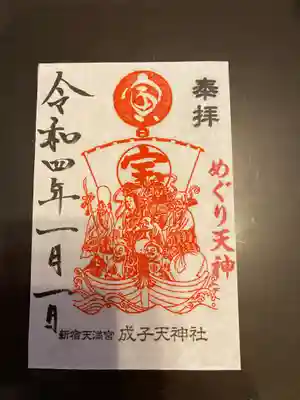 奉拝
めぐり天神
宝
令和四年一月一日
新宿天満宮 成子天神社